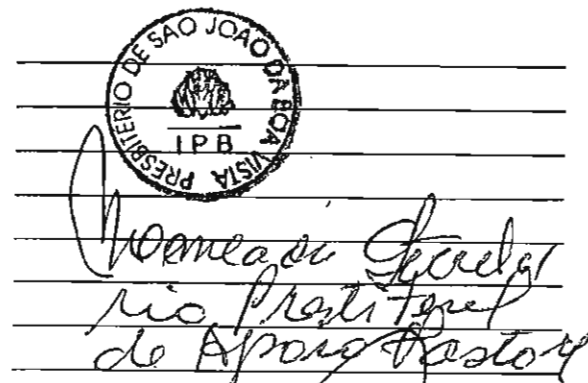 PRESBITERIO DE SAO JOAO DA BOA VISTA
IPB
Nomeação Secretá
rio Presbiteral
de Apoio Pastoral